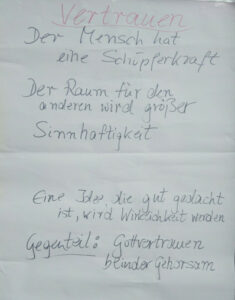 Vertrauen
Der Mensch hat
eine Schöpferkraft
Der Raum für den
anderen wird größer
Sinnhaftigkeit
Eine Idee die gut gedacht
ist, wird Wirklichkeit werden
Gegenteil: Gottvertrauen
blinder Gehorsam